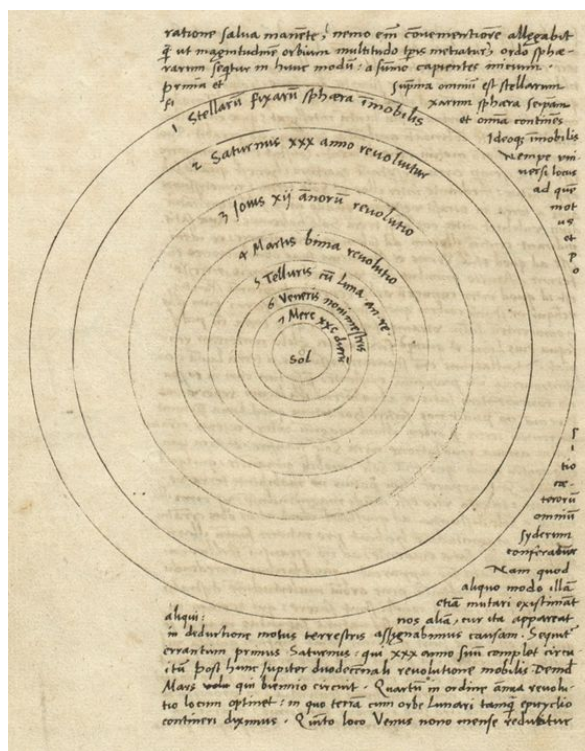 ratione salua manēte, nemo em̄ cōuenientiorē allegabit
q̄ ut magnitudinē orbium multitudo tp̄is metiatur, ordo sphæ-
rarum seq̄tur in hunc modū: a sūmo capientes initium.
prima et suprīa omniū est stellarum
fi xarum sphæra seip̄am
et omīa continēs
Ideoq; īmobilis
Nempe uni
uersi locus
ad quē
mot
us
et
po
1 Stellarū fixarū sphæra īmobilis
2 Saturnus xxx anno reuoluitur
3 Iouis xij añorū reuolutio
4 Martis bima reuolutio
5 Telluris cū luna an. re.
6 Veneris nonimestris
7 Merc xxc dierū
Sol
s
i
tio
cæ
terorū
omniū
syderum
conferatur
Nam quod
aliquo modo illā
etiā mutari existimāt
aliqui: nos aliā, cur ita appareat
in deductione motus terrestris assignabimus causam. Sequit̄
errantium primus Saturnus: qui xxx anno suū complet circu
itū post hunc Iupiter duodecēnali reuolutione mobilis Deinde
Mars qui biennio circuit. Quartū in ordine ānua reuolu
tio locum optinet: in quo terrā cum orbe Lunari tamq̄ epicyclio
contineri diximus. Quīto loco Venus nono mense reducitur